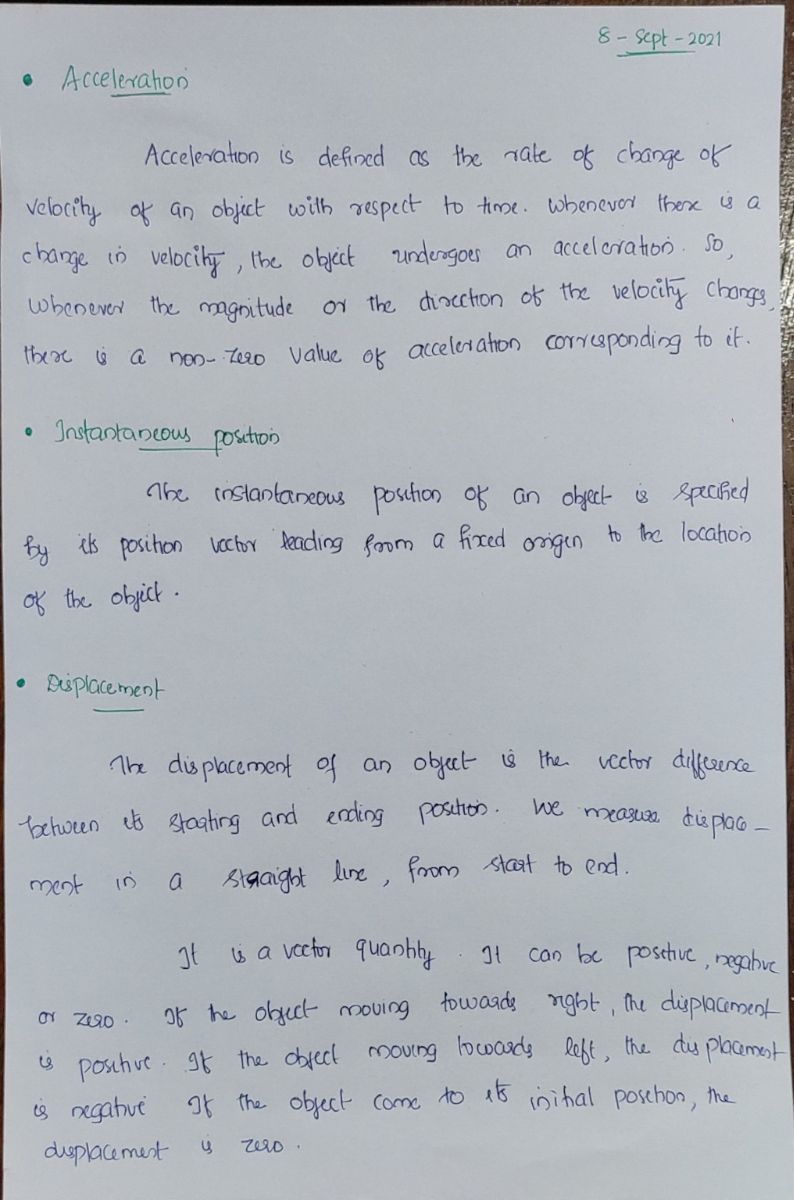 8 - Sept - 2021
• Acceleration
Acceleration is defined as the rate of change of
velocity of an object with respect to time. Whenever there is a
change in velocity, the object undergoes an acceleration. So,
Whenever the magnitude or the direction of the velocity changes,
there is a non-zero value of acceleration corresponding to it.
• Instantaneous position
The instantaneous position of an object is specified
by its position vector leading from a fixed origin to the location
of the object.
• Displacement
The displacement of an object is the vector difference
between its starting and ending position. We measure displace-
ment in a straight line, from start to end.
It is a vector quantity. It can be positive, negative
or zero. If the object moving towards right, the displacement
is positive. If the object moving towards left, the displacement
is negative If the object come to its initial position, the
displacement is zero.